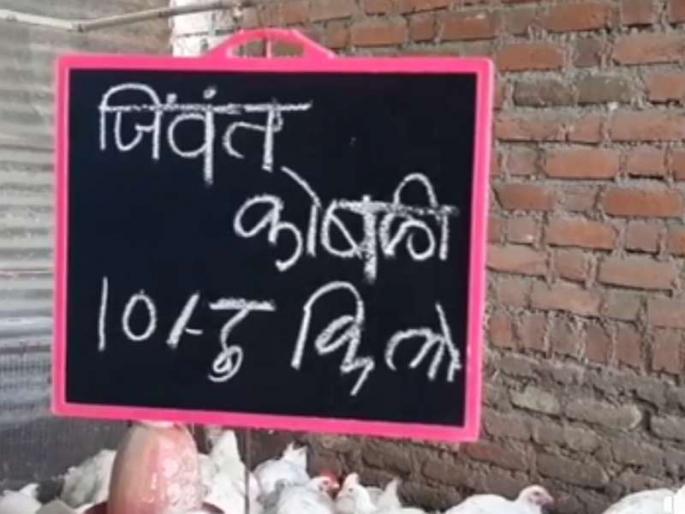 जिंवंत
कोंबळी
10/-रु किलो